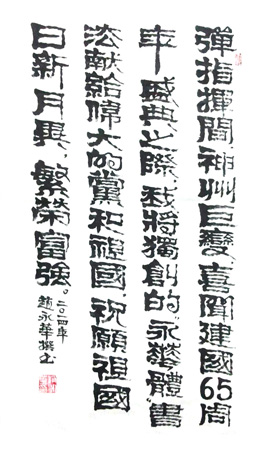 彈指揮間，神州巨變，喜聞建國65周
年盛典之際，我將獨創的"永華體"書
法獻給偉大的黨和祖國，祝願祖國
日新月異，繁榮富強。
二〇一四年
趙永華撰書